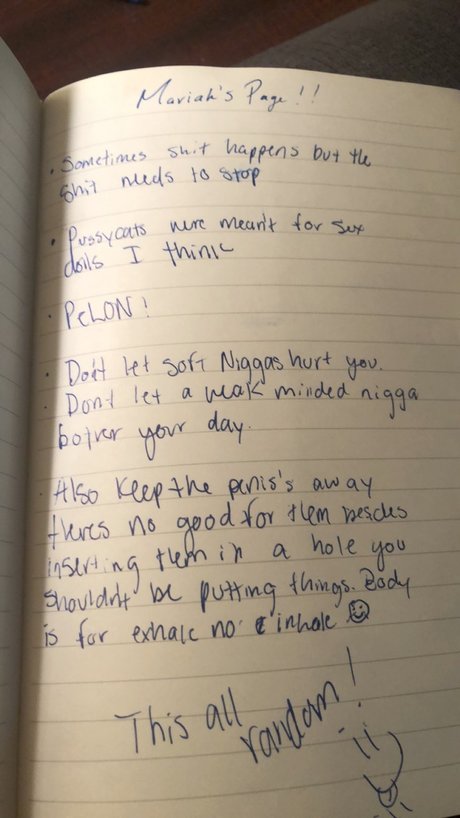 Mariah's Page!!
· Sometimes shit happens but the
shit needs to stop
· Pussycats were mean't for sex
dolls I think
· PeLON!
· Don't let soft Niggas hurt you.
· Dont let a weak minded nigga
botver your day.
· Also keep the penis's away
theres no good for them besides
inserting them in a hole you
shouldn't be putting things. Body
is for exhale no inhale ☺
This all
random!